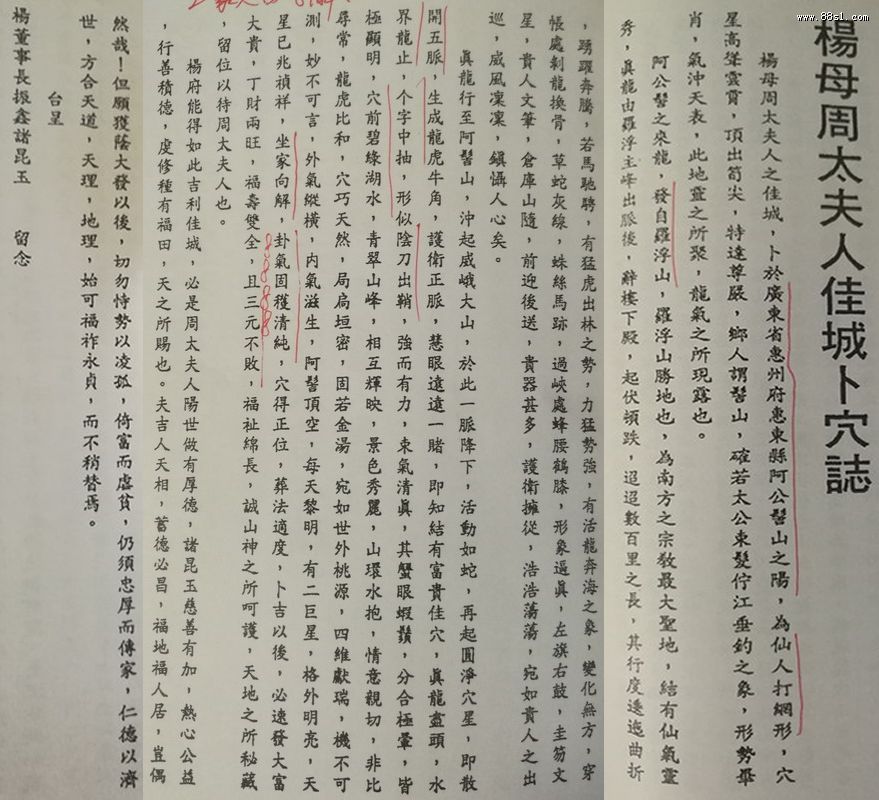 www.88s1.com
楊母周太夫人佳城卜穴誌
楊母周太夫人之佳城，卜於廣東省惠州府惠東縣阿公髻山之陽，為仙人打網形，穴
星高聳雲霄，頂出笏尖，特達尊嚴，鄉人謂髻山，確若太公束髮佇江垂釣之象，形勢畢
肖，氣沖天表，此地靈之所聚，龍氣之所現露也。
阿公髻之來龍，發自羅浮山，羅浮山勝地也，為南方之宗教最大聖地，結有仙氣靈
秀，眞龍由羅浮主峰出脈後，辭樓下殿，起伏頓跌，迢迢數百里之長，其行度逶迤曲折
，踴躍奔騰，若馬馳騁，有猛虎出林之勢，力猛勢強，有活龍奔海之象，變化無方，穿
帳處剝龍換骨，草蛇灰線，蛛絲馬跡，過峽處蜂腰鶴膝，形象逼眞，左旗右鼓，圭笏文
星，貴人文筆，倉庫山隨，前迎後送，貴器甚多，護衛擁從，浩浩蕩蕩，宛如貴人之出
巡，威風凜凜，鎭懾人心矣。
眞龍行至阿髻山，沖起威峨大山，於此一脈降下，活動如蛇，再起圓淨穴星，即散
開五脈，生成龍虎牛角，護衛正脈，慧眼遠遠一睹，即知結有富貴佳穴，眞龍盡頭，水
界龍止，个字中抽，形似陰刀出鞘，強而有力，束氣清眞，其蟹眼蝦鬚，分合極暈，皆
極顯明，穴前碧綠湖水，青翠山峰，相互輝映，景色秀麗，山環水抱，情意親切，非比
尋常，龍虎比和，穴巧天然，局扃垣密，固若金湯，宛如世外桃源，四維獻瑞，機不可
測，妙不可言，外氣縱橫，內氣滋生，阿髻頂空，每天黎明，有二巨星，格外明亮，天
星已兆禎祥，坐家向解，卦氣固穫清純，穴得正位，葬法適度，卜吉以後，必速發大富
大貴，丁財兩旺，福壽雙全，且三元不敗，福祉綿長，誠山神之所呵護，天地之所秘藏
，留位以待周太夫人也。
楊府能得如此吉利佳城，必是周太夫人陽世做有厚德，諸昆玉慈善有加，熱心公益
，行善積德，虔修種有福田，天之所賜也。夫吉人天相，蓄德必昌，福地福人居，豈偶
然哉！但願獲蔭大發以後，切勿恃勢以凌孤，倚富而虛貧，仍須忠厚而傳家，仁德以濟
世，方合天道，天理，地理，始可福祚永貞，而不稍替焉。
台呈
楊董事長振鑫諸昆玉　留念